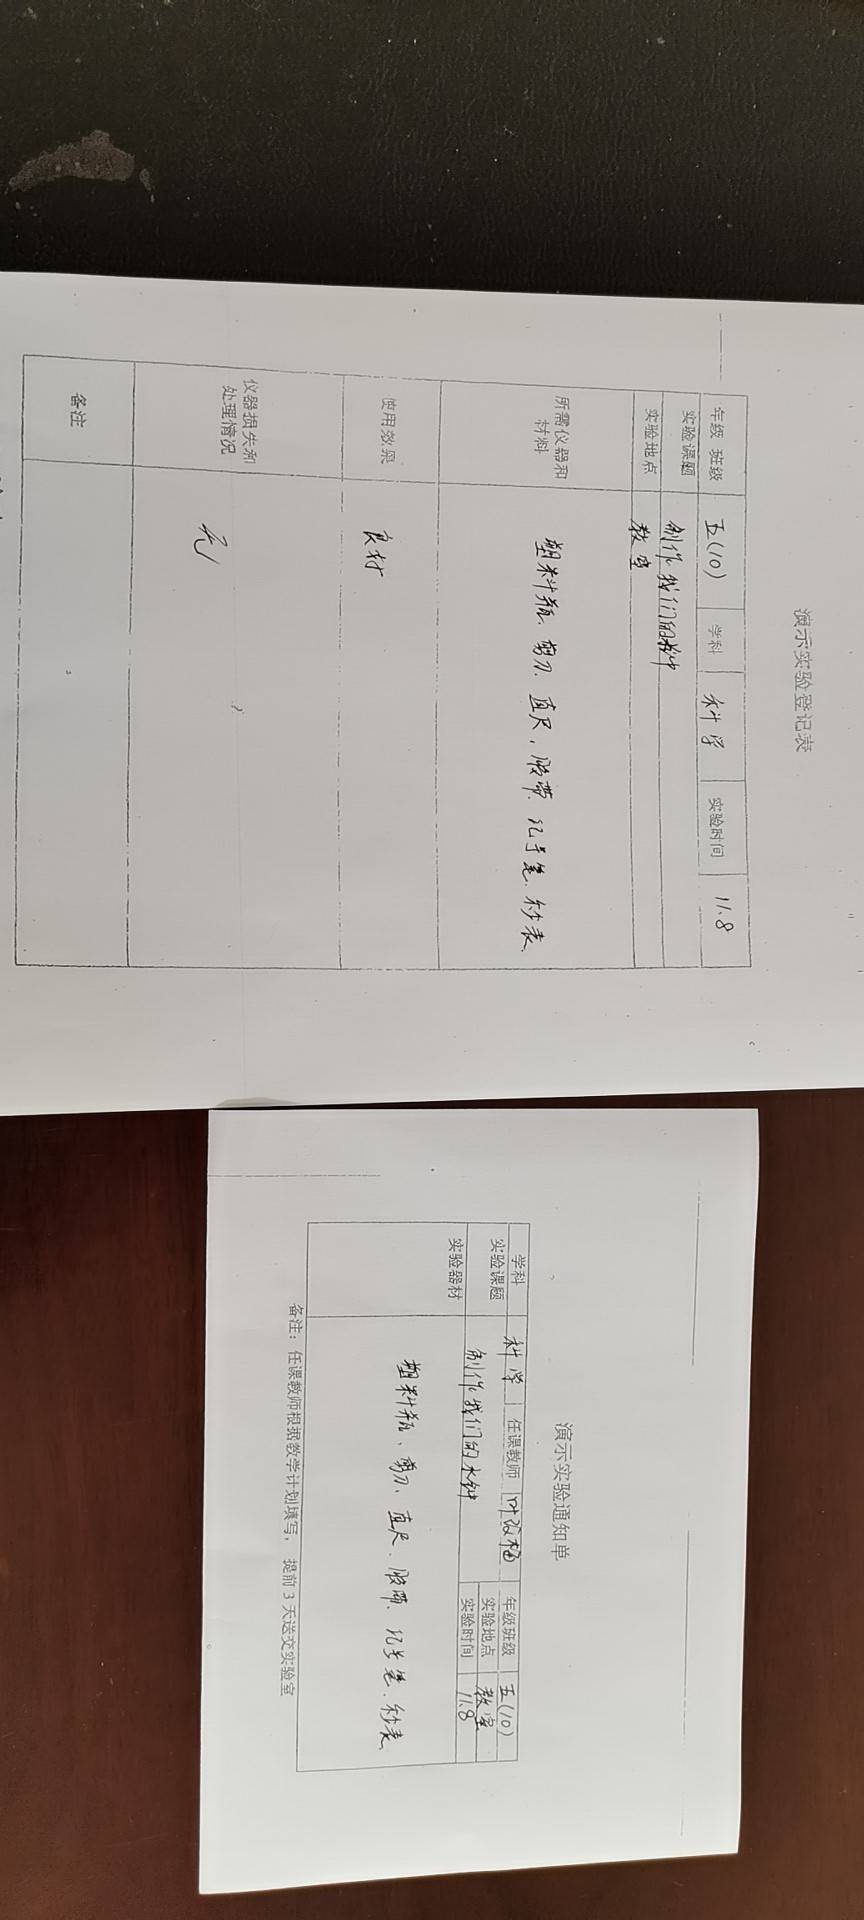 演示实验登记表
年级 班级 五(10) 学科 科学 实验时间 11.8
实验课题 制作我们的水钟
实验地点 教室
所需仪器和
材料 塑料瓶、剪刀、直尺，胶带、记号笔、秒表
使用效果 良好
仪器损失和
处理情况 无
备注
演示实验通知单
学科 科学 任课教师 年级班级 五(10)
实验课题 制作我们的水钟 实验地点 教室
实验时间 11.8
实验器材 塑料瓶、剪刀、直尺、胶带、记号笔、秒表
备注：任课教师根据教学计划填写，提前3天送交实验室